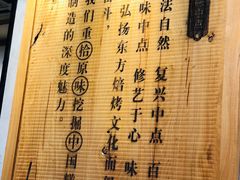 法自然 复兴中点 百
味中点 修艺于心 味
弘扬东方焙烤文化而
奋斗，
我们重拾原味挖掘中国
制造的深度魅力。